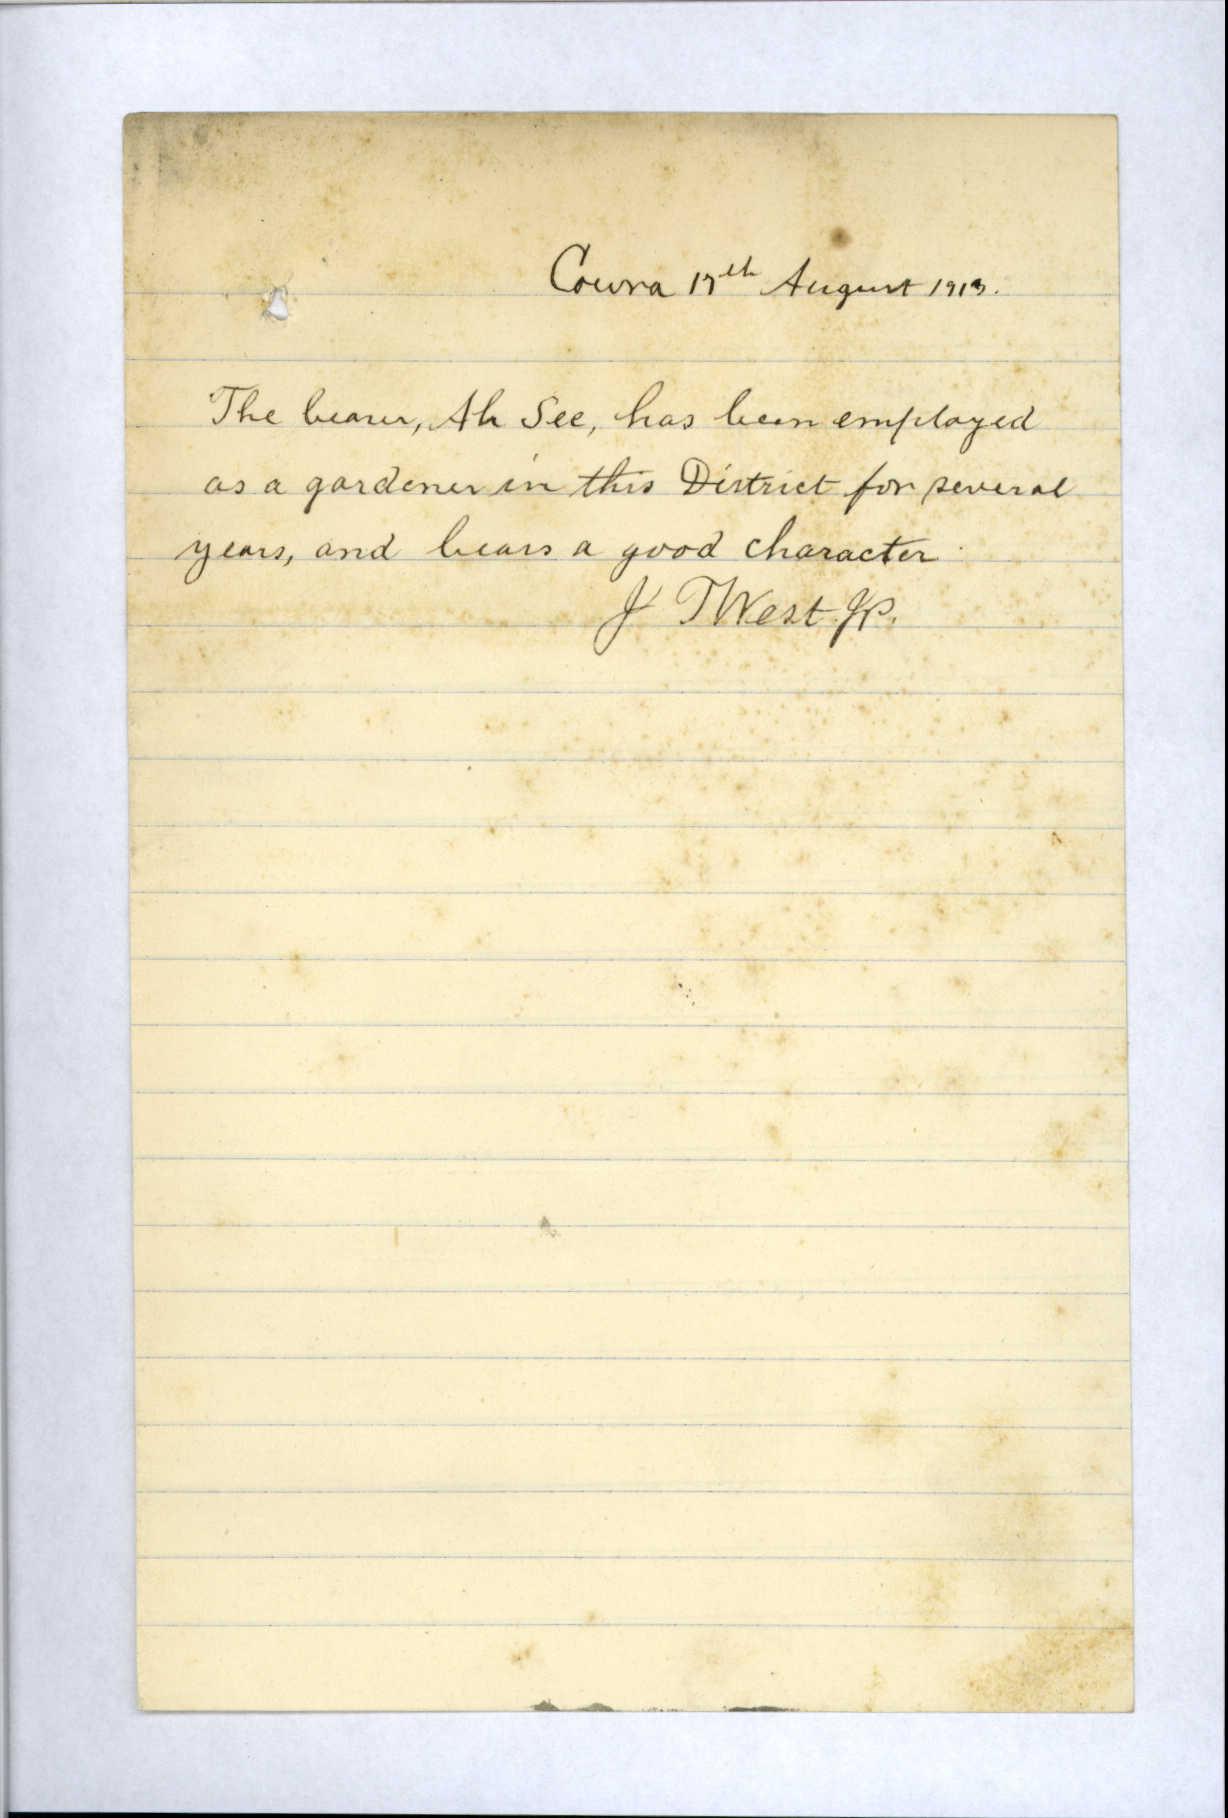 Cowra 17th August 1913.
The bearer, Ah See, has been employed
as a gardener in this District for several
years, and bears a good character.
J T West. JP.